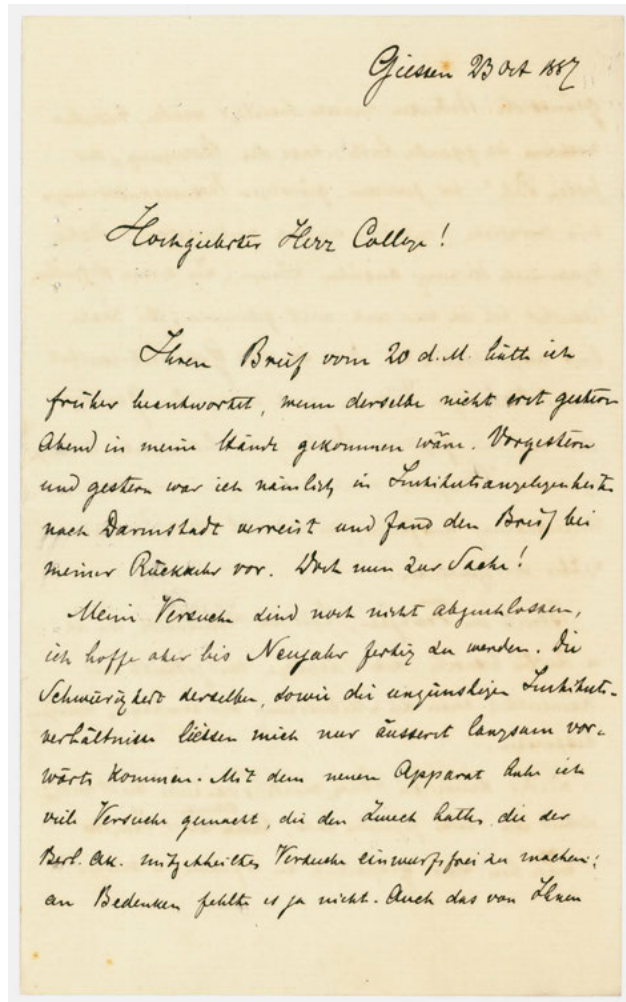 Giessen 23 Oct 1887
Hochgeehrter Herr College!
Ihren Brief vom 20 d. M. hätte ich
früher beantwortet, wenn derselbe nicht erst gestern
Abend in meine Hände gekommen wäre. Vorgestern
und gestern war ich nämlich in Institutsangelegenheiten
nach Darmstadt verreist und fand den Brief bei
meiner Rückkehr vor. Doch nun zur Sache!
Meine Versuche sind noch nicht abgeschlossen,
ich hoffe aber bis Neujahr fertig zu werden. Die
Schwierigkeit derselben, sowie die ungünstigen Instituts-
verhältnisse liessen mich nur äusserst langsam vor-
wärts kommen. Mit dem neuen Apparat habe ich
viele Versuche gemacht, die den Zweck hatten, die der
Berl. Ak. mitgetheilten Versuche einwurfsfrei zu machen;
an Bedenken fehlte es ja nicht. Auch das von Ihnen